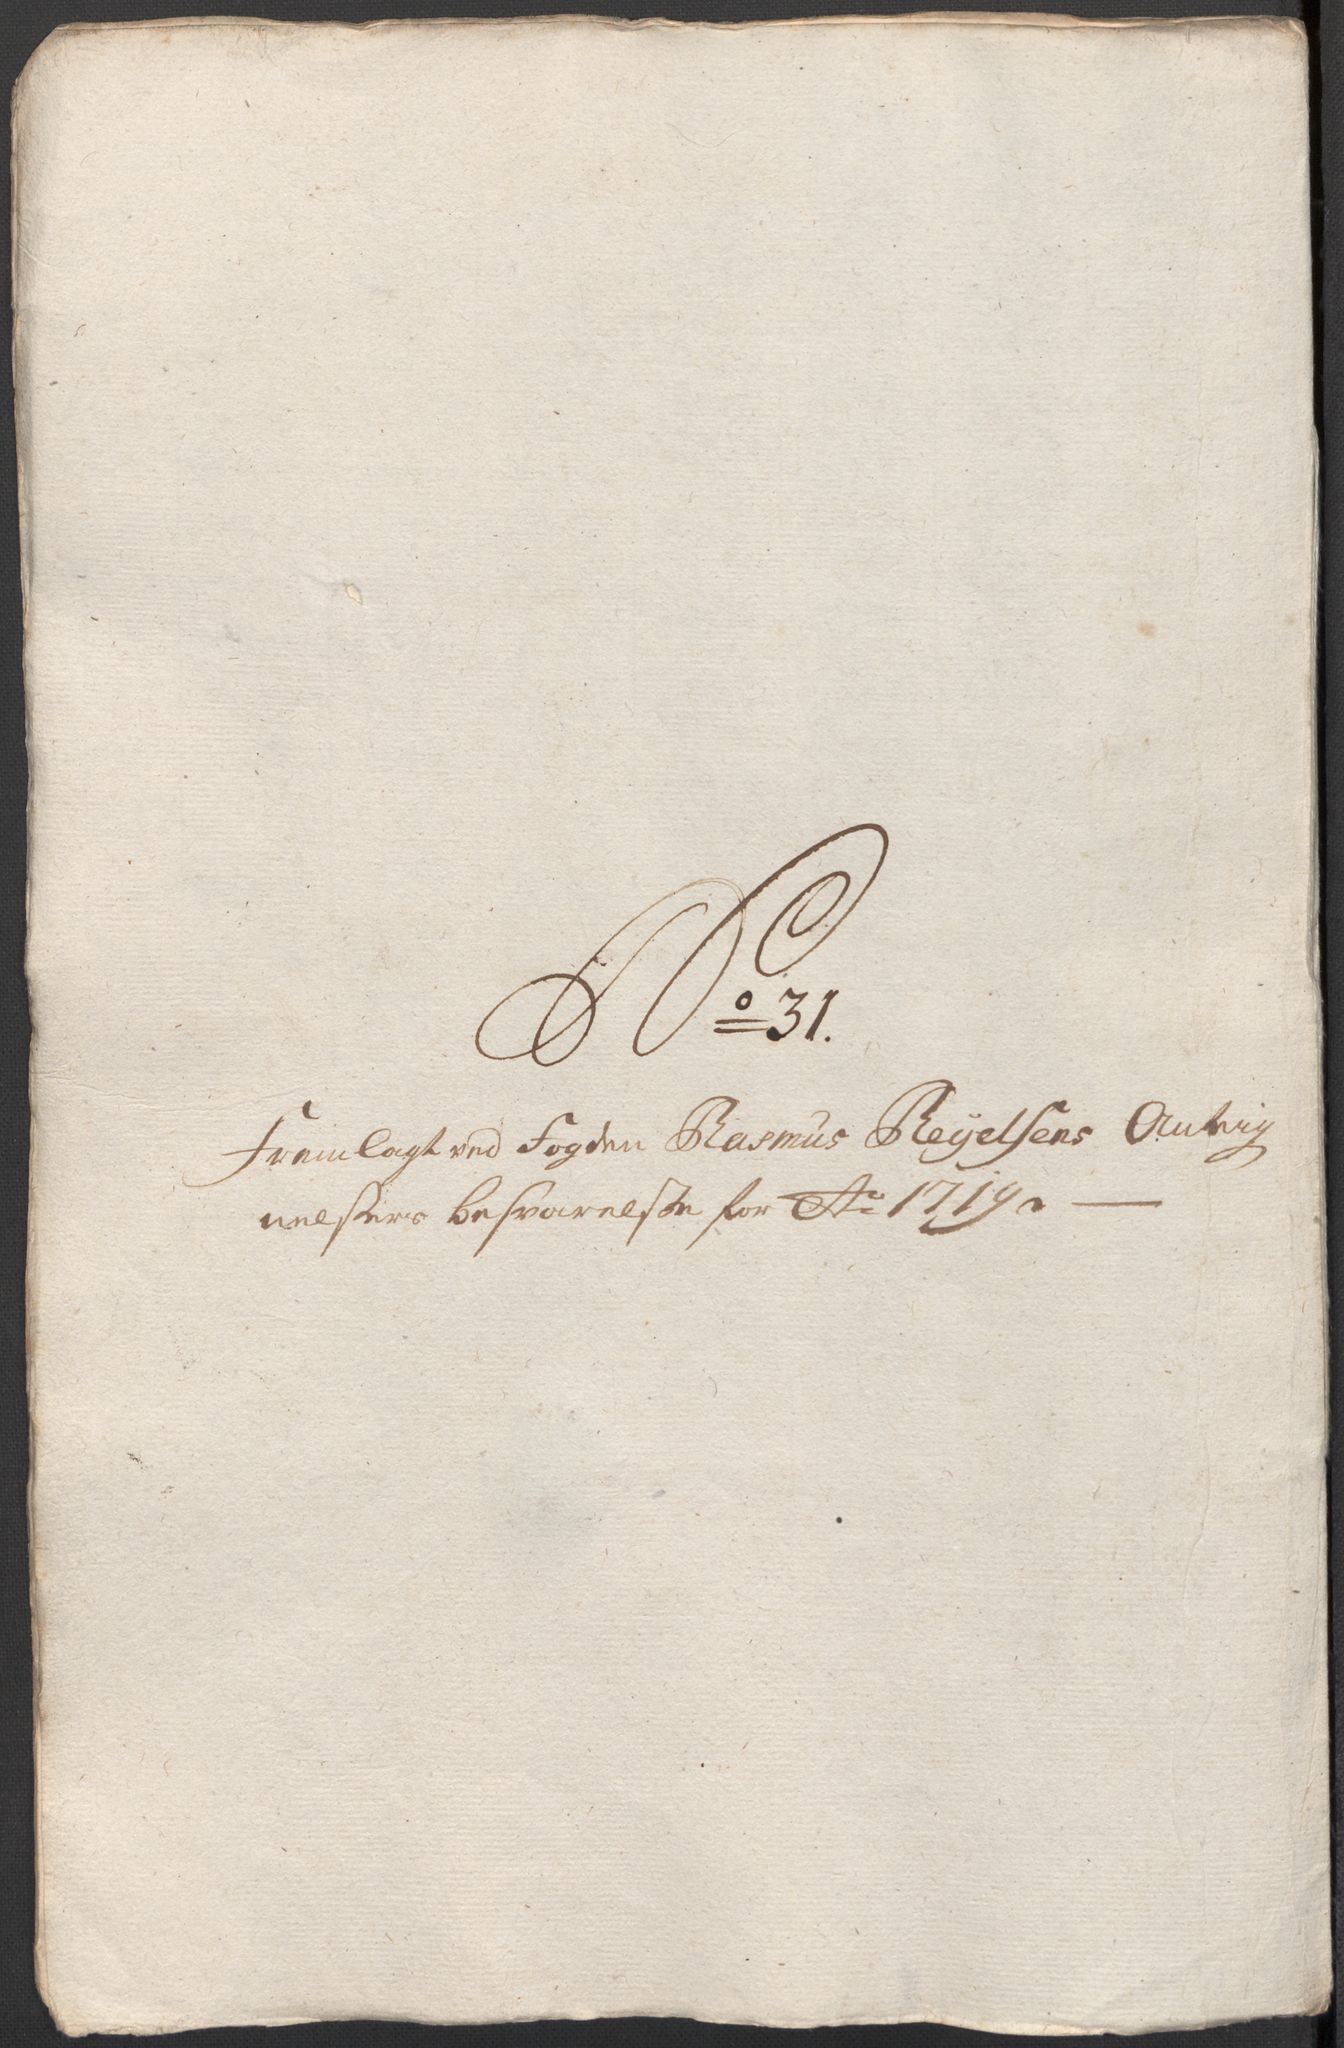 No 31.
Fremlagt ved Fogden Rasmus Reyelsens Antvig
nelsers besvarelse for Ao 1719.